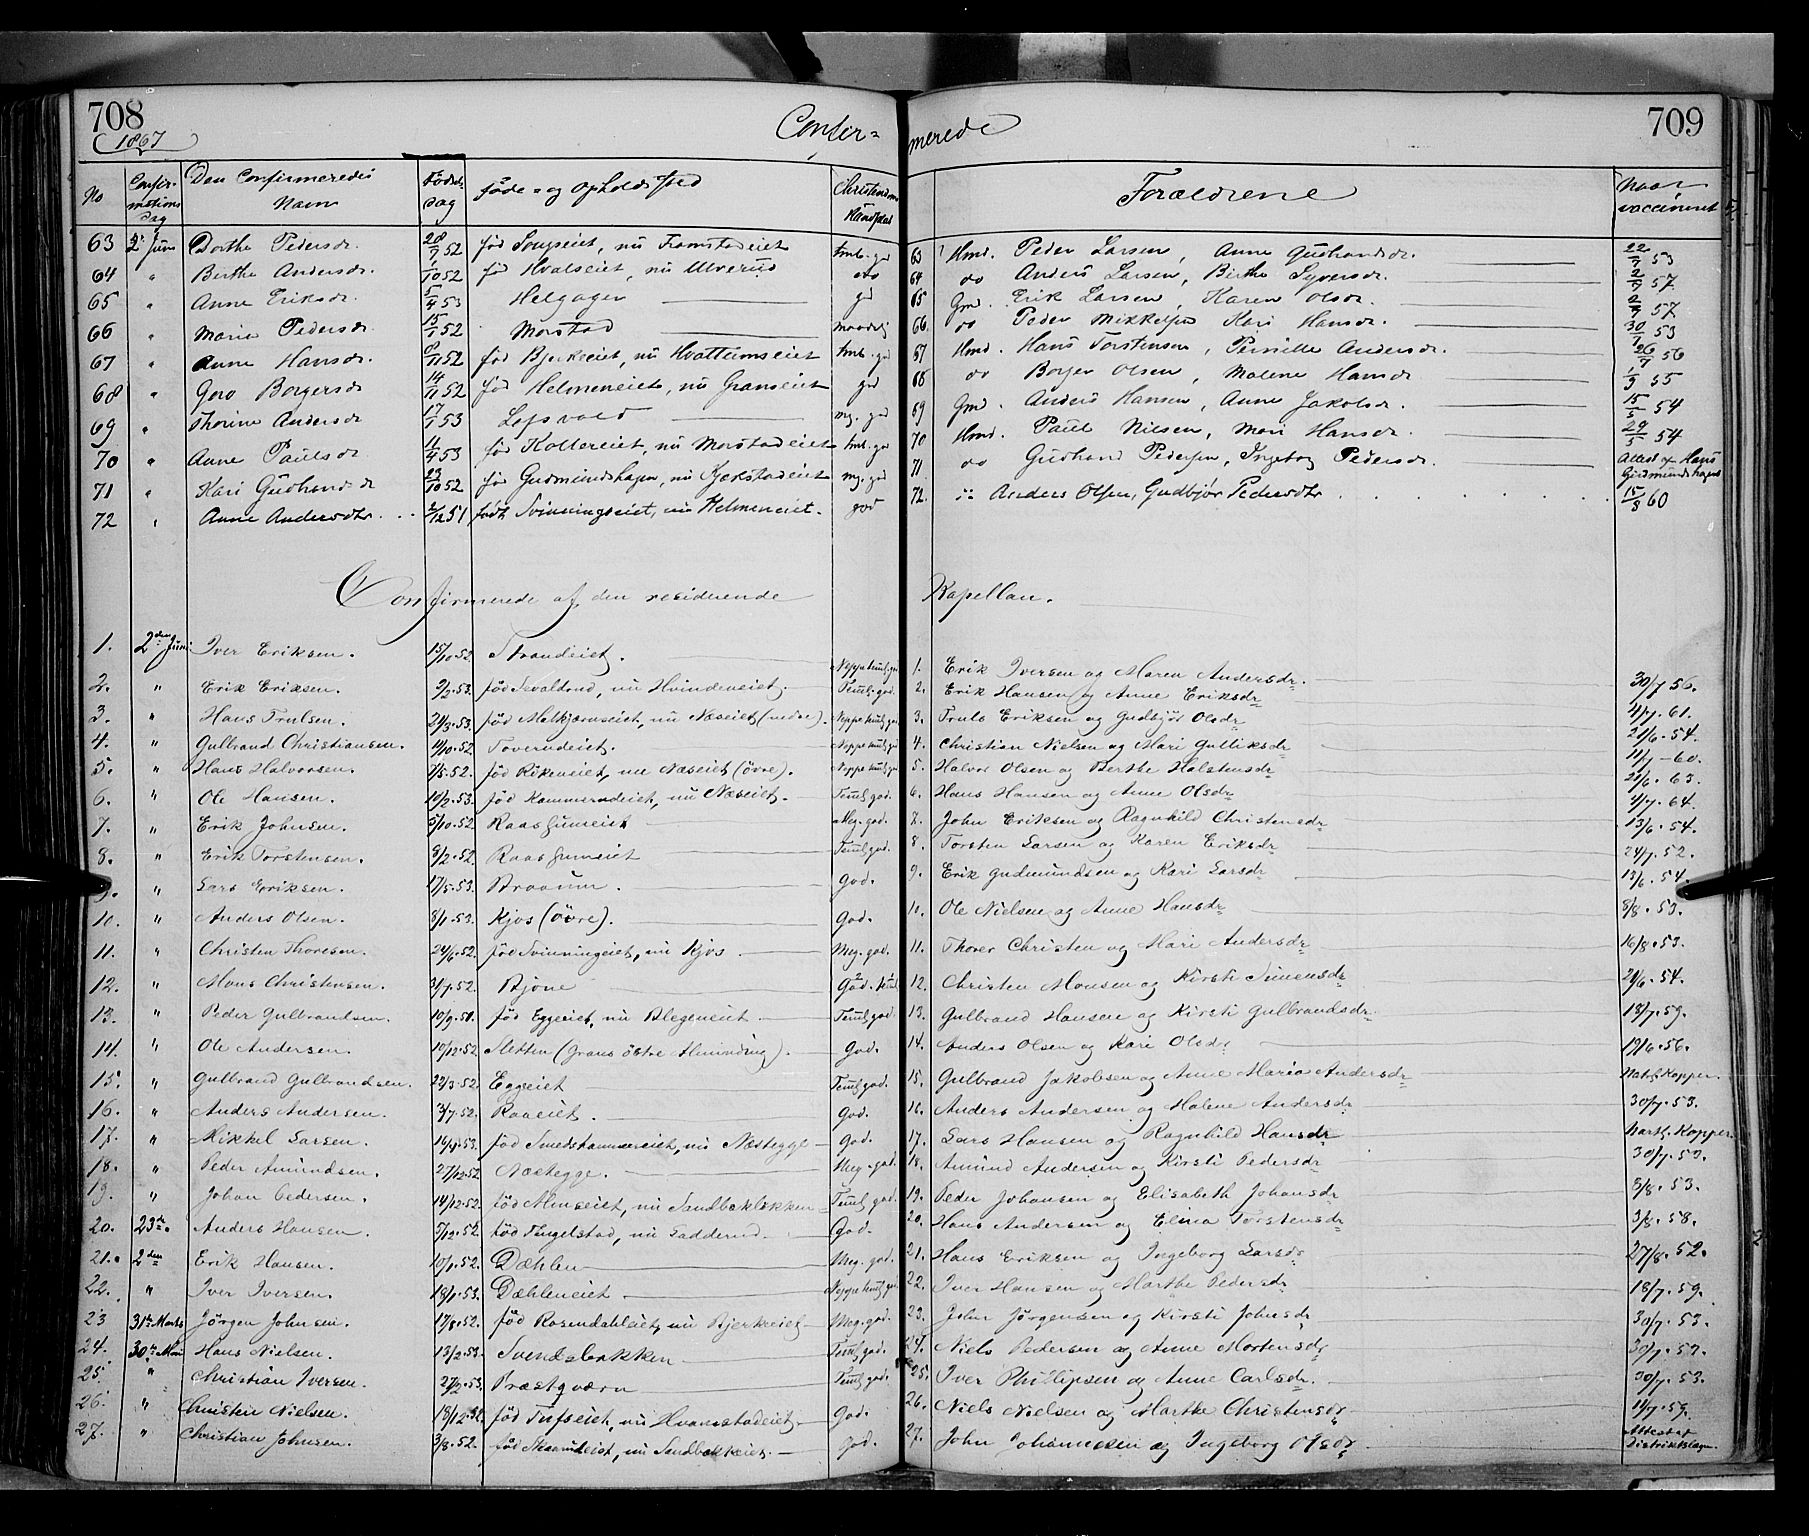 708
1867
Confir=
merede
709
No
Confir-
mations
dag
Den Confirmeredes
Navn
Føds.
dag
føde- og Opholdssted
Christendoms
Kundskab
Forældrene
Naar
vaccineret
63 2 Juni Dorthe Pedersdr. 28/7 52 fød Longseiet, nu Framstadeiet tmb. gd 63 Hmd. Peder Larsen, Anne Gudhandsdr. 22/7 53
64 " Berthe Andersdr. 1/10 52 fød Hvalseiet, nu Ulverud do 64 do Anders Larsen, Birthe Syversdr. 2/9 57
65 " Anne Eriksdr. 5/4 53 Helgager gd 65 Gmd. Erik Larsen, Karen Olsdr. 2/9 57
66 " Maria Pedersdr. 15/1 52 Morstad maadelig 66 do Peder Mikkelsen Kari Hansdr. 30/7 53
67 " Anne Hansdr. 8/11 52 fød Bjerkeeiet, nu Hvattumseiet tmb. gd 67 Hmd. Hans Torstensen, Pernille Andersdr. 26/7 56
68 " Goro Borgersdr 14/11 52 fød Helmeneiet, nu Granseiet gd 68 do Borger Olsen, Malene Hansdr 1/9 55
69 " Thorine Andersdr 17/1 53 Lofsvold mg. gd 69 Gmd. Anders Hansen, Anne Jakobsdr. 15/6 54
70 " Anne Paulsdr 11/4 53 fød Kollereiet, nu Morstadeiet tmb. gd 70 Hmd. Paul Nilsen, Mari Hansdr. 29/5 54
71 " Kari Gudhandsdr 23/10 52 fød Gudmundshagen, nu Kjekstadeiet mg. gd 71 do Gudhand Pedersen, Ingebor Pedersdr. Attest af Hans Gudmundshagen
72 " Anne Andersdtr. 2/12 51 født Svinningseiet, nu Helmeneiet. god 72. Anders Olsen, Gudbjør Pedersdtr 15/8 60
Confirmerede af den residerende
Kapellan.
1. 2den Juni Iver Eriksen. 15/10.52 Strandeiet. Neppe tmb. gd 1. Erik Iversen og Maren Andersdr. 30/7 56.
2. " Erik Eriksen. 9/3.53. fød Sevaldrud, nu Hvindeneiet. Teml. god. 2. Erik Hansen og Anne Eriksdr. 4/7.61.
3. " Hans Trulsen. 24/3.53. fød Melkjærnseiet, nu Næseiet (nedre). Neppe tml. gd 3. Truls Eriksen og Gudbjør Olsdr 21/6.54.
4. " Gulbrand Christiansen. 14/10.52. Toverudeiet. Neppe tml. gd 4. Christian Nielsen og Mari Gulliksdr 11/7-60.
5. " Hans Halvorsen. 1/5.52. fød Rikeneiet, nu Næseiet (övre). Neppe tml. gd 5. Halvor Olsen og Berthe Halstensdr 21/6.63.
6. " Ole Hansen. 10/2.53. fød Kammerudeiet, nu Næseiet. Teml. god. 6. Hans Hansen og Anne Olsdr 4/7.64.
7. " Erik Johnsen. 5/10.52. Raassumeiet Meg. god. 7. John Eriksen og Ragnhild Christensdr 13/6.54.
8. " Erik Torstensen. 8/2.52. Raassumeiet Teml. god. 8. Torsten Larsen og Karen Eriksdr 24/7.52.
9. " Lars Eriksen. 17/5.53. Braaum. God. 9. Erik Gudmundsen og Kari Larsdr 13/6.54.
10. " Anders Olsen. 8/1.53. Kjos (övre). God. 10. Ole Nielsen og Anne Hansdr 8/8.53.
11. " Christen Thoresen. 24/6.52. fød Svinningeiet, nu Kjos Meg. god. 11. Thorer Christen og Mari Andersdr 16/8.53.
12. " Mons Christensen. 31/7.52. Bjöne God. 12. Christen Monsen og Kirsti Simensdr 21/6.54.
13. " Peder Gulbrandsen. 10/9.51. fød Eggeeiet, nu Blegeneiet. Teml. god. 13. Gulbrand Hansen og Kirsti Gulbrandsdr. 18/7.59.
14. " Ole Andersen. 10/12.52. Sletten (Grans östre Alminding). God. 14. Anders Olsen og Kari Olsdr 19/6.56.
15. " Gulbrand Gulbrandsen. 22/3.52. Eggeeiet Teml. god. 15. Gulbrand Jakobsen og Anne Maria Andersdr Natl. Kopper.
16. " Anders Andersen. 3/7.52. Raaeiet. God. 16. Anders Andersen og Malene Andersdr 30/7.53.
17. " Mikkel Larsen. 16/4.53. fød Smedshammereiet, nu Næstegge God. 17. Lars Hansen og Ragnhild Hansdr Natl. Kopper.
18. " Peder Amundsen. 27/12.52 Næstegge. Meg. god. 18. Amund Andersen og Kirsti Pedersdr 30/7.53.
19. " Johan Pedersen. 14/12.52. fød Almseiet, nu Sandbakbakken Teml. god. 19. Peder Johansen og Elisabeth Johansdr 3/8.53.
20. 23de. Anders Hansen. 7/12.52 fød Tingelstad, nu Gadderud. God. 20. Hans Andersen og Elina Torstensdr 3/8.58.
21. 2den Erik Hansen. 10/1.52. Dæhlen Meg. god. 21. Hans Eriksen og Ingeborg Larsdr 27/8.52.
22. " Iver Iversen. 18/1.53. Dæhleneiet Neppe tml. gd 22. Iver Hansen og Marthe Pedersdr 18/7.59.
23 31te Marts Jörgen Johnsen. 17/8.52. fød Rosendahleiet, nu Bjerkeeiet Meg. god. 23. John Jörgensen og Kirsti Johnsdr 30/7.53.
24. 30te Mai Hans Nielsen. 13/2.53. Svendsbakken Teml. god. 24. Niels Pedersen og Anne Mortensdr 30/7.57.
25. " Christian Iversen. 27/2.53. Præstqværn Teml. god. 25. Iver Phillipsen og Anne Carlsdr. 30/7.53.
26. " Christen Nielsen. 18/12.52. fød Tufseiet, nu Hvamstadeiet. God. 26. Niels Nielsen og Marthe Christensdr 14/7.59.
27. " Christian Johnsen. 3/8.52. fød Skaareiet, nu Sandbakkeiet. God. 27. John Johannesen og Ingeborg Olsdr Attest af Distriktslægen.